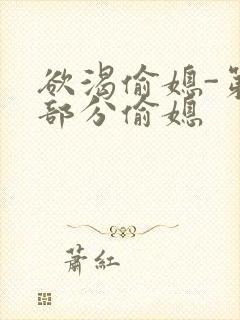 欲渴偷媳-第
部分偷媳
蕭紅